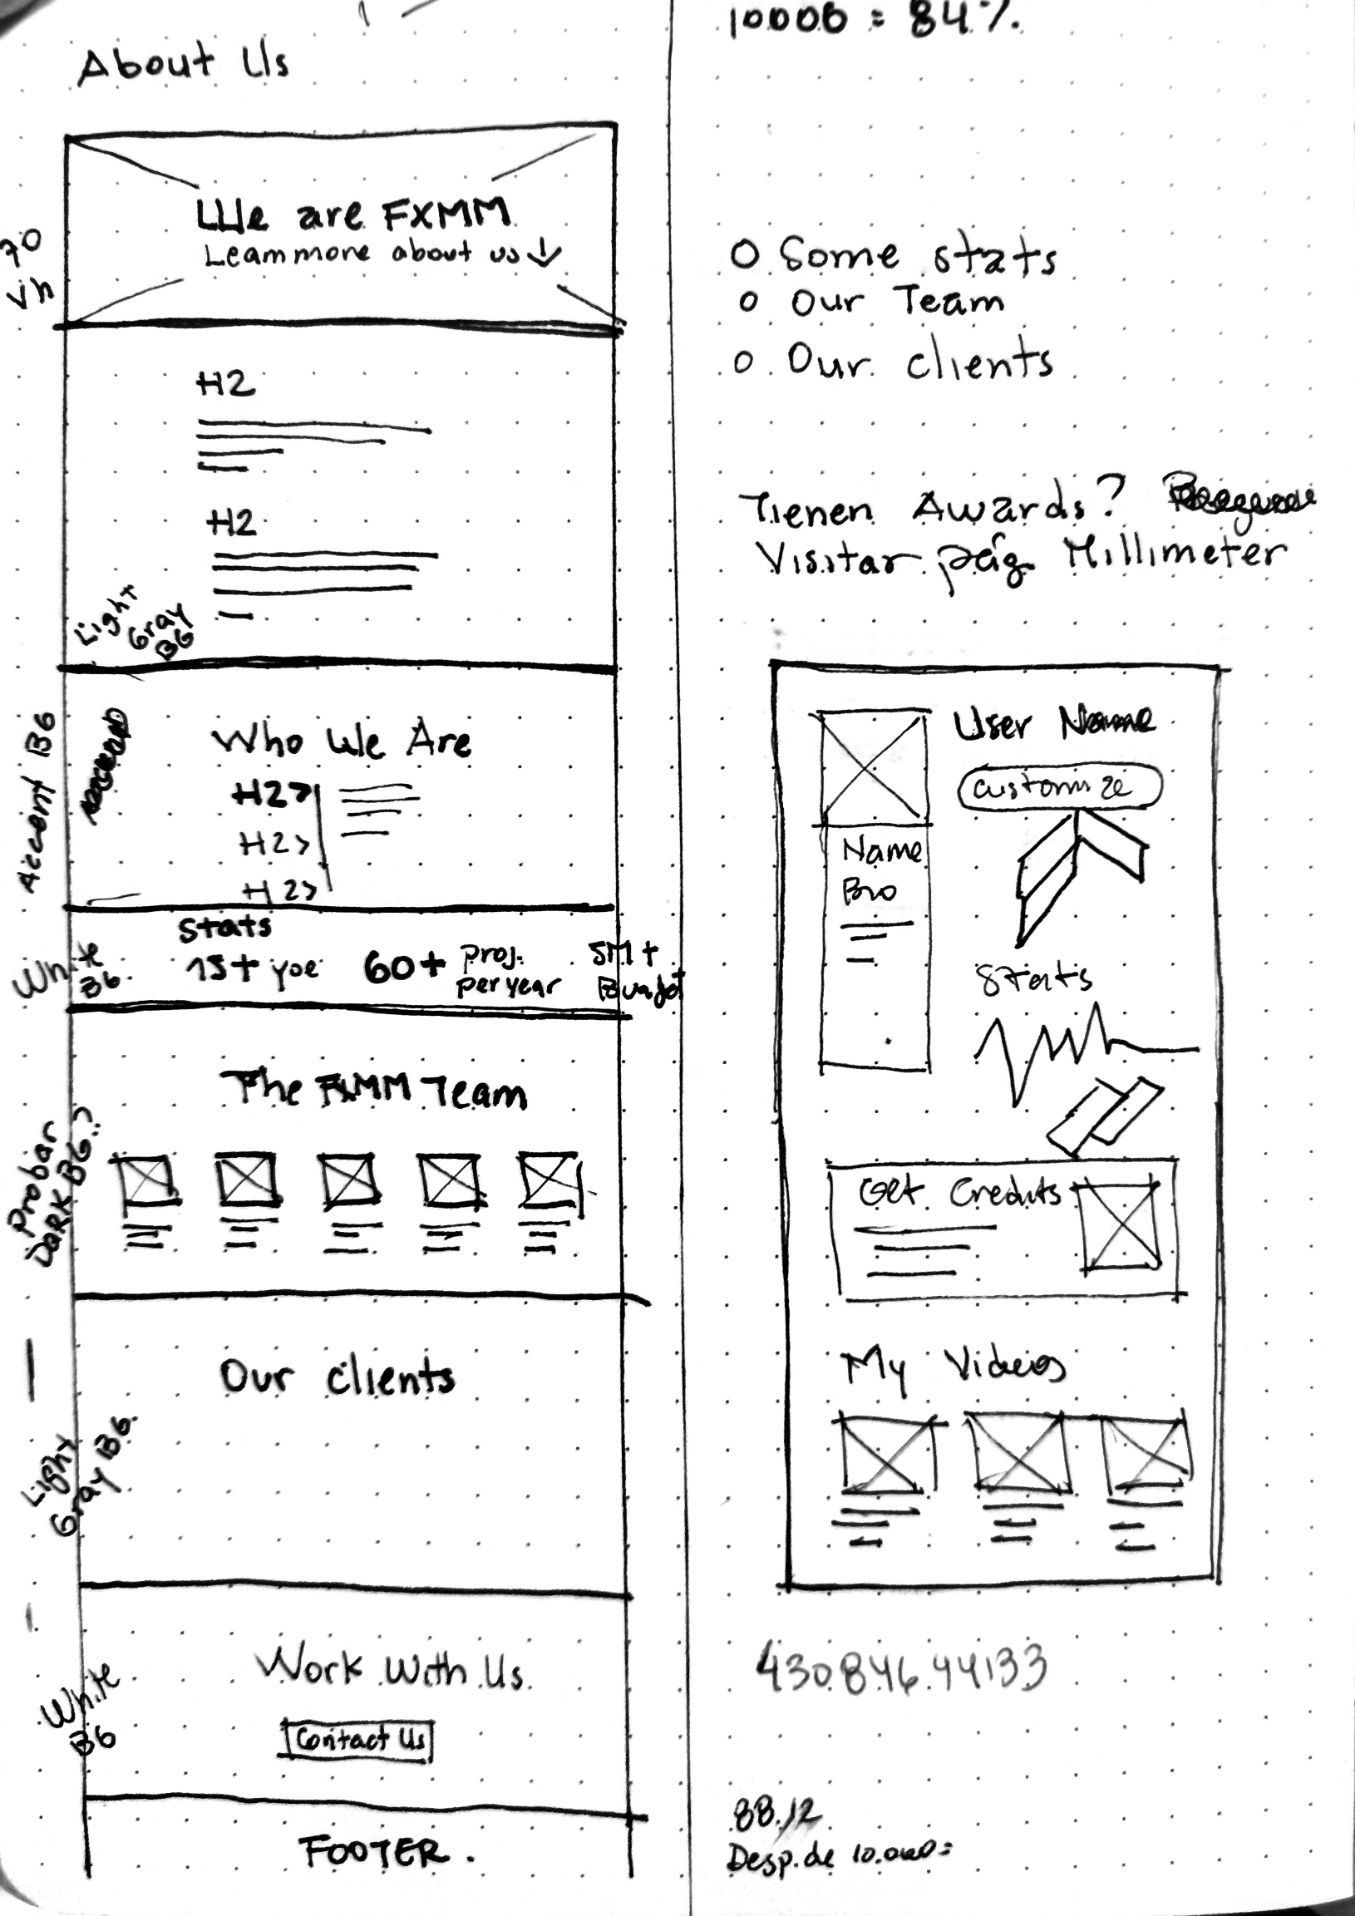 About Us
We are FXMM
Learn more about us ↓
70
vh
H2
H2
Light
Gray
BG
Accent BG
Who We Are
H2>
H2>
H2>
White
BG.
Stats
15+ yoe
60+ Proj.
per year
5M+
Budget
The FXMM Team
Probar
DARK BG.?
Our clients
Light
Gray BG.
Work With Us
Contact Us
White
BG
FOOTER.
10000 = 84%
O Some stats
O Our Team
O Our clients
Tienen Awards?
Visitar pág Millimeter
User Name
customize
Name
Bio
Stats
Get Credits
My Videos
430.846.44133
88.12
Desp. de 10.000=